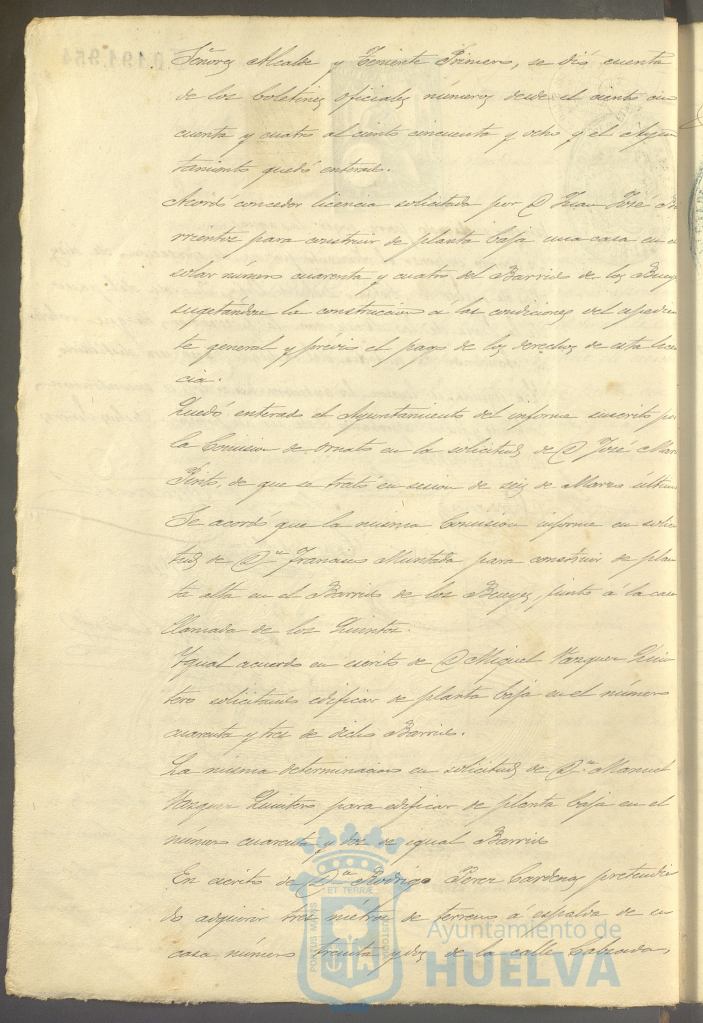 Señores Alcalde y Teniente Primero, se dió cuenta
de los boletines oficiales números desde el ciento cin
cuenta y cuatro al ciento cincuenta y ocho y el Ayun
tamiento quedó enterado.
Acordó conceder licencia solicitada por D Juan José Ba
rrientos para construir de planta baja una casa en el
solar número cuarenta y cuatro del Barrio de los Bueyes
sugetándose la construccion á las condiciones del espedien
te general y prévio el pago de los derechos de esta licen
cia.
Quedó enterado el Ayuntamiento del informe suscrito por
la Comision de ornato en la solicitud de D José Mar
Pinto, de que se trató en sesion de seis de Marzo último
Se acordó que la misma Comision informe en solici
tud de Dn Francisco Muntada para construir de plan
ta alta en el Barrio de los Bueyes, junto á la casa
llamada de los Quintos.
Ygual acuerdo en escrito de D Miguel Vazquez Quin
tero solicitando edificar de planta baja en el número
cuarenta y tres de dicho Barrio.
La misma determinacion en solicitud de Dn Manuel
Vazquez Quintero para edificar de planta baja en el
número cuarenta y dos de igual Barrio
En escrito de Dn Rodrigo Perez Cardenas pretendien
do adquirir tres métros de terreno á espalda de su
casa número treinta y dos de la calle Calzada,
PORTUS MARIS
ET TERRÆ
CUSTODIA
Ayuntamiento de
HUELVA